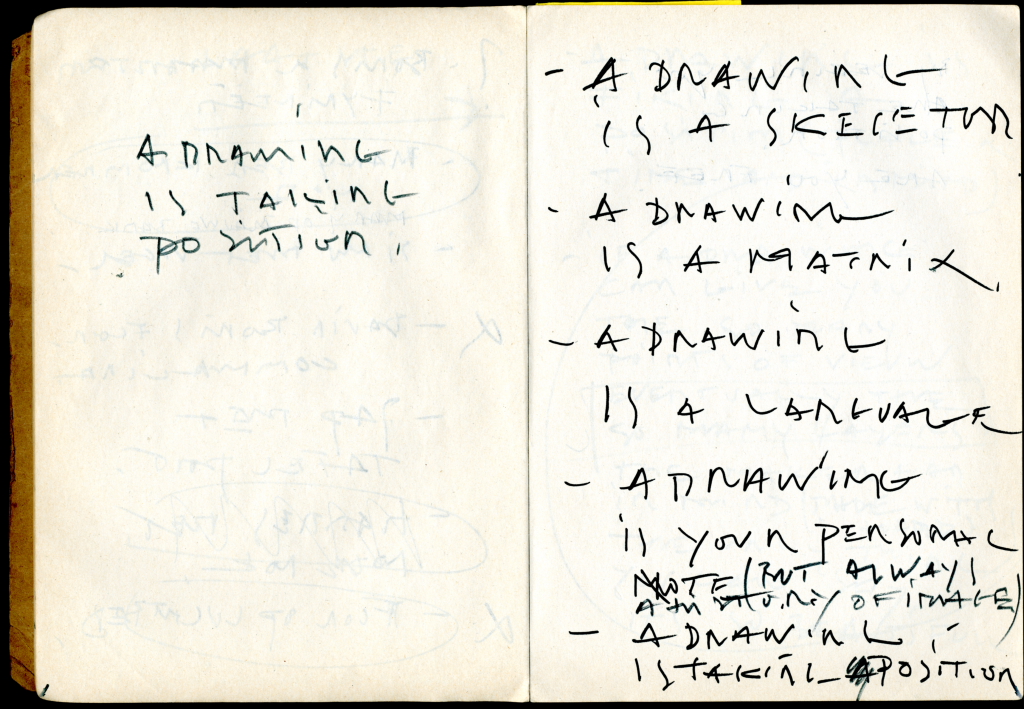 A DRAWING
IS TAKING
POSITION.
- A DRAWING
IS A SKELETUR
- A DRAWING
IS A MATRIX.
- A DRAWING
IS A LANGUAGE
- A DRAWING
IS YOUR PERSONAL
NOTE (BUT ALWAYS
A HISTORY OF IMAGE)
- A DRAWING
IS TAKING A POSITION